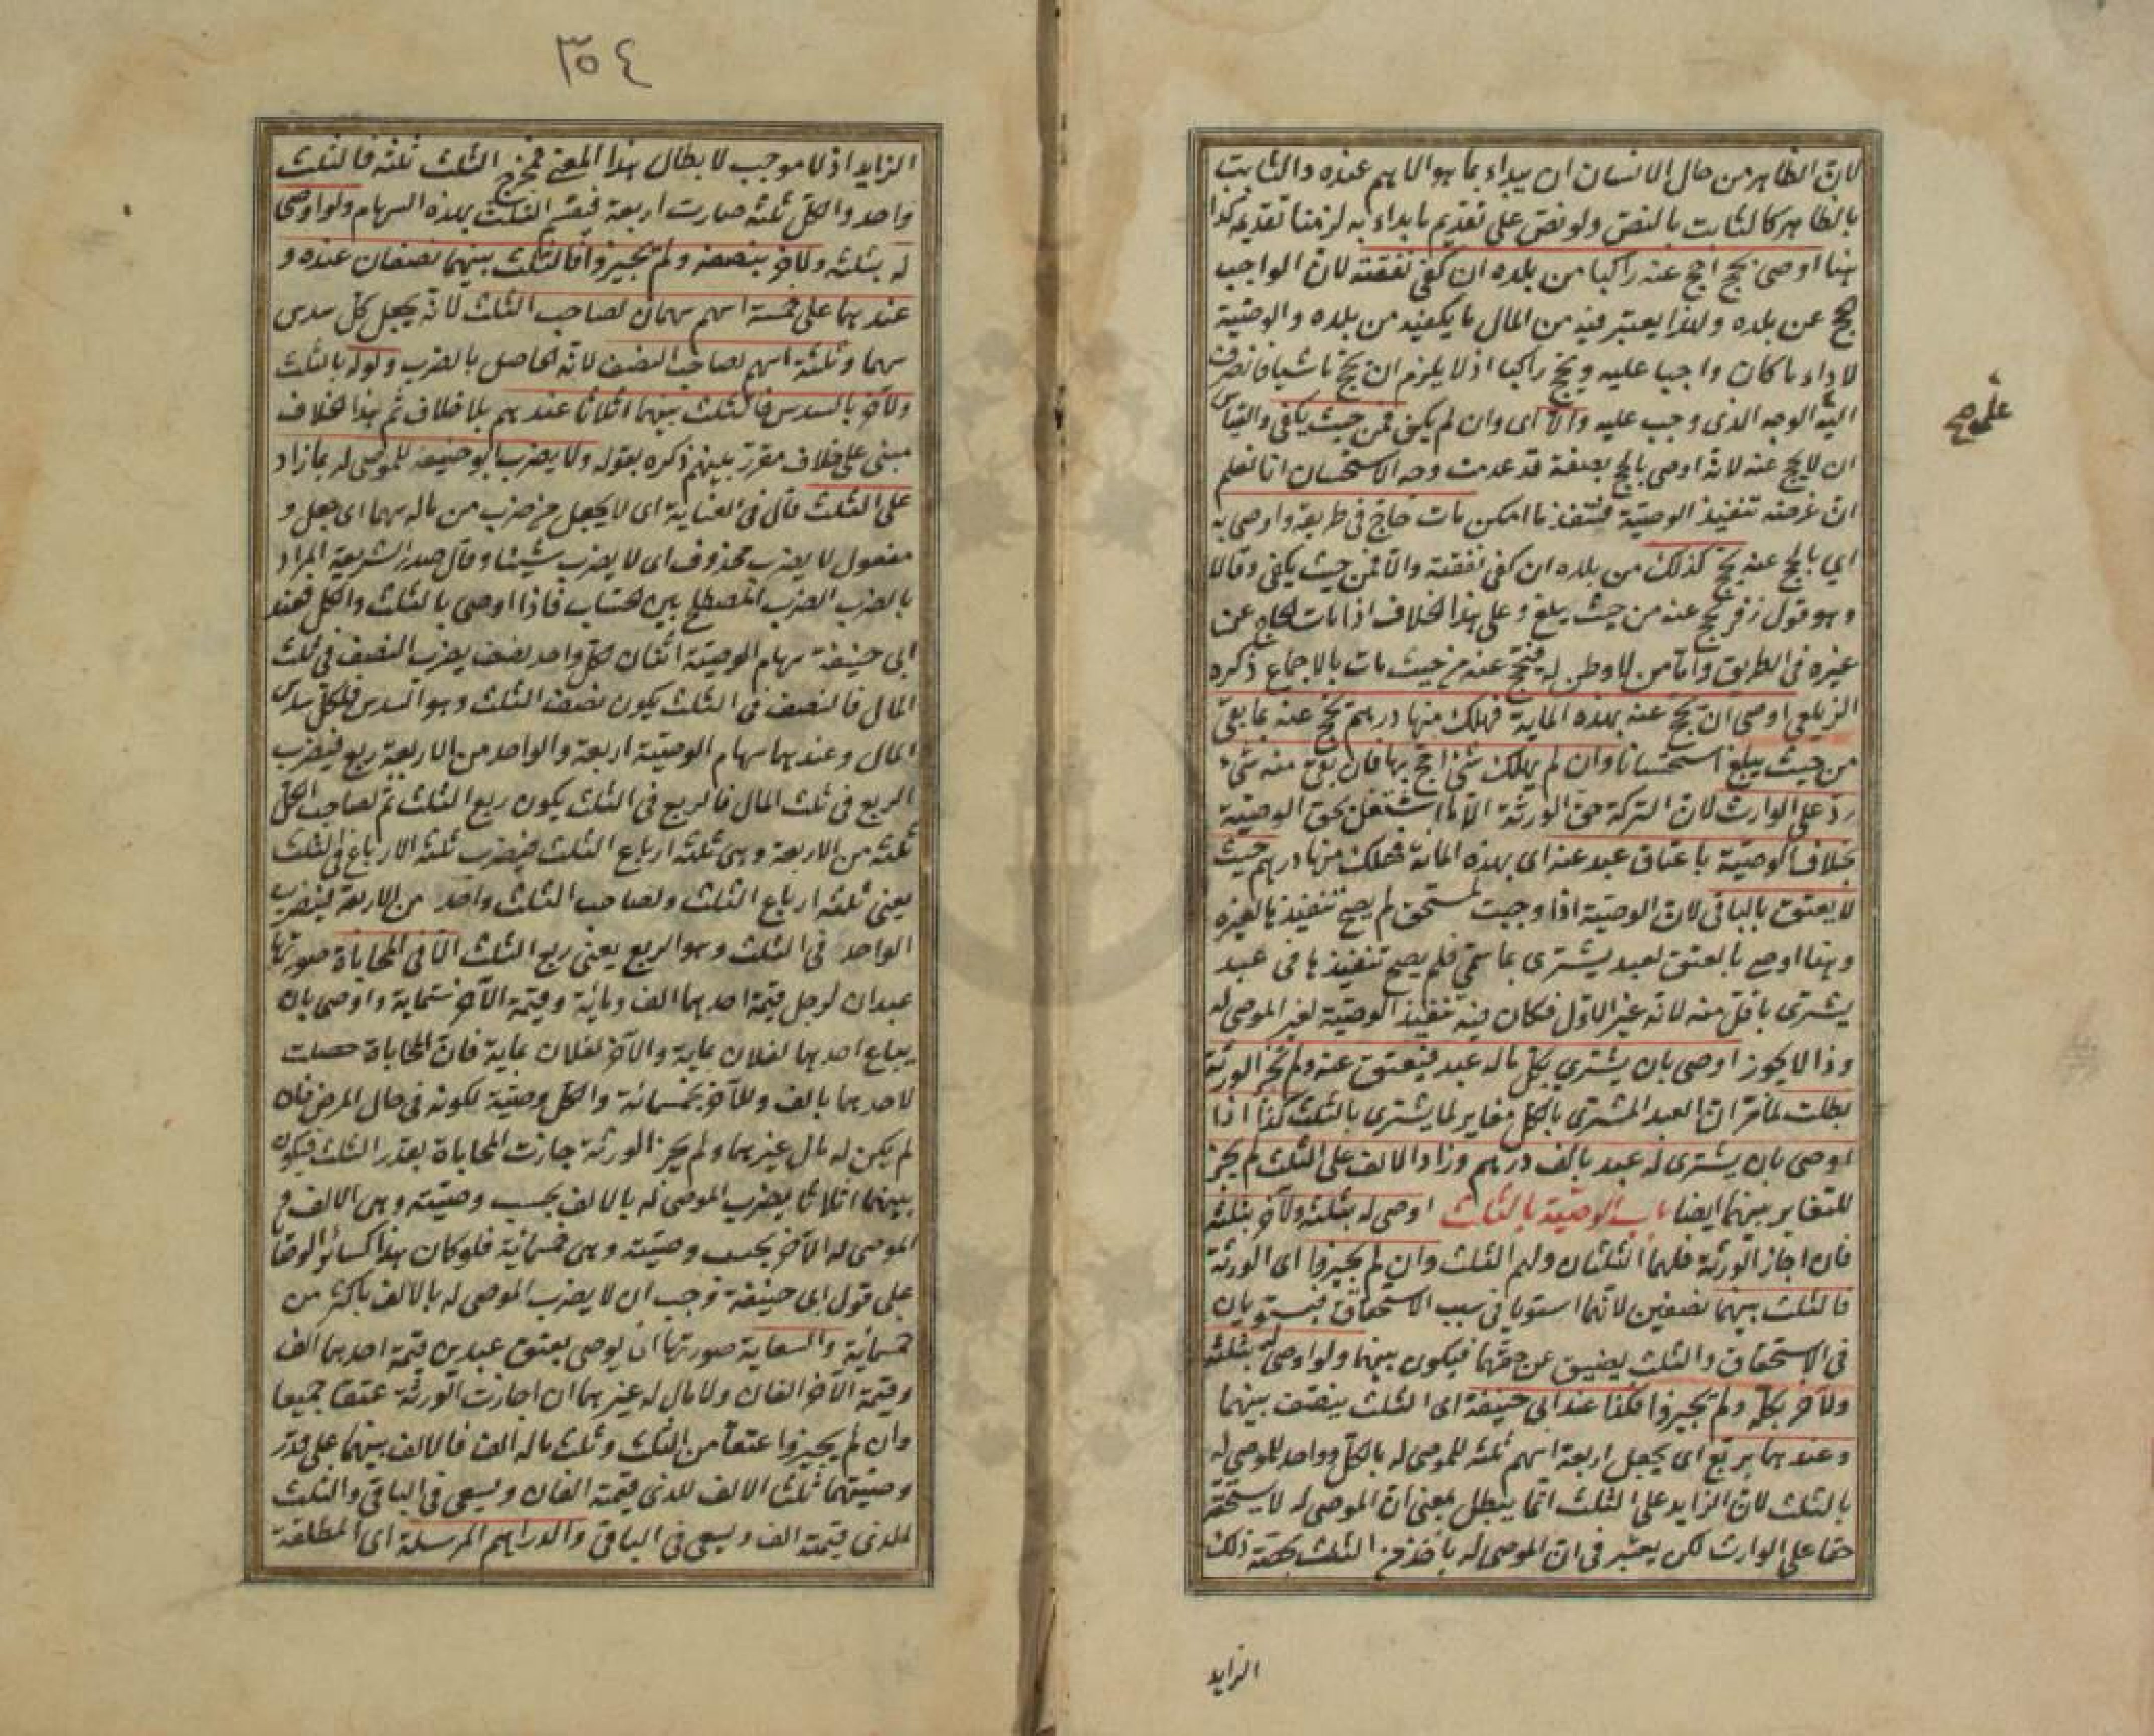 لان الظاهر من حال الانسان ان يبداء بما هو الاهم عنده والثابت
بالظاهر كالثابت بالنص ولو نص على تقديم ما بداء به لزمنا تقديمه كذا
هنا اوصى بحج احج عنه راكبا من بلده ان كفى نفقته لان الواجب
حج عن بلده ولهذا يعتبر فيه من المال ما يكفيه من بلده والوصية
لاداء ما كان واجبا عليه ويحج راكبا اذ لا يلزم ان يحج ماشيا فانصرف
اليه الوجه الذى وجب عليه والا اى وان لم يكف فمن حيث يكفى والقياس
ان لا يحج عنه لانه اوصى بالحج بصفة قد عدمت وجه الاستحسان انا نعلم
ان غرضه تنفيذ الوصية فتنفذ ما امكن مات حاج فى طريقه واوصى به
اي بالحج عنه يحج كذلك من بلده ان كفى نفقته والا فمن حيث يكفى وقالا
وهو قول زفر يحج عنه من حيث يبلغ وعلى هذا الخلاف اذا مات الحاج عن
غيره فى الطريق واما من لا وطن له فيحج عنه من حيث مات بالاجماع ذكره
الزيلعى اوصى ان يحج عنه بهذه الماية فهلك منها درهم يحج عنه بما بقى
من حيث يبلغ استحسانا وان لم يهلك شئ احج بها فان بقى منه شئ
رد على الوارث لان التركة حق الورثة الا ما اشتغل بحق الوصية
بخلاف الوصية باعتاق عبد عنه اى بهذه الماية فهلك منها درهم حيث
لا يعتق بالباقى لان الوصية اذا وجبت لمستحق لم يصح تنفيذها لغيره
وهنا اوصى بالعتق لعبد يشترى بما سمى فلم يصح تنفيذها فى عبد
يشترى باقل منه لانه غير الاول فكان فيه تنفيذ الوصية لغير الموصى له
وذا لا يجوز اوصى بان يشتري بكل ماله عبد فيعتق عنه ولم تجز الورثة
بطلت لما مر ان العبد المشترى بالكل مغاير لما يشترى بالثلث كذا اذا
اوصى بان يشترى له عبد بالف درهم وزاد الالف على الثلث لم يجز
للتغاير بينهما ايضا باب الوصية بالثلث اوصى له بثلثه ولآخر بثلثه
فان اجاز الورثة فلهما الثلثان ولهم الثلث وان لم يجيزوا اى الورثة
فالثلث بينهما نصفين لانهما استويا فى سبب الاستحقاق فيستويان
فى الاستحقاق والثلث يضيق عن حقهما فيكون بينهما ولو اوصى له بثلثه
ولآخر بكله ولم يجيزوا فكذا عند ابى حنيفة اى الثلث ينصف بينهما
وعندهما يربع اى يجعل اربعة اسهم ثلثة للموصى له بالكل وواحد للموصى له
بالثلث لان الزايد على الثلث انما يبطل بمعنى ان الموصى له لا يستحقه
حقا على الوارث لكن يعتبر فى ان الموصى له ياخذ من الثلث بحصة ذلك
الزايد
٣٥٤
الزايد اذ لا موجب لابطال هذا المعنى فمخرج الثلث ثلثة فالثلث
واحد والكل ثلثة صارت اربعة فيقسم الثلث بهذه السهام ولو اوصى
له بثلثه ولآخر بنصفه ولم يجيزوا فالثلث بينهما نصفان عنده و
عندهما على خمسة اسهم سهمان لصاحب الثلث لانه يجعل كل سدس
سهما وثلثة اسهم لصاحب النصف لانه الحاصل بالضرب ولو له بالثلث
ولآخر بالسدس فالثلث بينهما اثلاثا عندهم بلا خلاف ثم هذا الخلاف
مبنى على خلاف مقرر بينهم ذكره بقوله ولا يضرب ابو حنيفة للموصى له بما زاد
على الثلث قال فى العناية اى لا يجعل من ضرب من ماله سهما اى جعل و
مفعول لا يضرب محذوف اى لا يضرب شيئا وقال صدر الشريعة المراد
بالضرب الضرب المصطلح بين الحساب فاذا اوصى بالثلث والكل فعند
ابى حنيفة سهام الوصية اثنان لكل واحد نصف يضرب النصف فى ثلث
المال فالنصف فى الثلث يكون نصف الثلث وهو السدس فلكل سدس
المال وعندهما سهام الوصية اربعة والواحد من الاربعة ربع فيضرب
الربع فى ثلث المال فالربع فى الثلث يكون ربع الثلث ثم لصاحب الكل
ثلثة من الاربعة وهى ثلثة ارباع الثلث فيضرب ثلثة الارباع فى الثلث
يعنى ثلثة ارباع الثلث ولصاحب الثلث واحد من الاربعة فيضرب
الواحد فى الثلث وهو الربع يعنى ربع الثلث الا فى المحاباة صورتها
عبدان لرجل قيمة احدهما الف ومائة وقيمة الآخر ستماية واوصى بان
يباع احدهما لفلان بماية والآخر لفلان بماية فان المحاباة حصلت
لاحدهما بالف وللآخر بخمسمائة والكل وصية لكونه فى حال المرض فان
لم يكن له مال غيرهما ولم يجز الورثة جازت المحاباة بقدر الثلث فيكون
بينهما اثلاثا يضرب الموصى له بالالف بحسب وصيته وهى الالف و
الموصى له الآخر بحسب وصيته وهى خمسمائة فلو كان هذا كسائر الوصايا
على قول ابى حنيفة وجب ان لا يضرب الموصى له بالالف باكثر من
خمسمائة والسعاية صورتها ان يوصى بعتق عبدين قيمة احدهما الف
وقيمة الآخر الفان ولا مال له غيرهما ان اجازت الورثة عتقا جميعا
وان لم يجيزوا عتقا من الثلث وثلث ماله الف فالالف بينهما على قدر
وصيتهما ثلثا الالف للذى قيمته الفان ويسعى فى الباقى والثلث
للذى قيمته الف ويسعى فى الباقى والدراهم المرسلة اى المطلقة